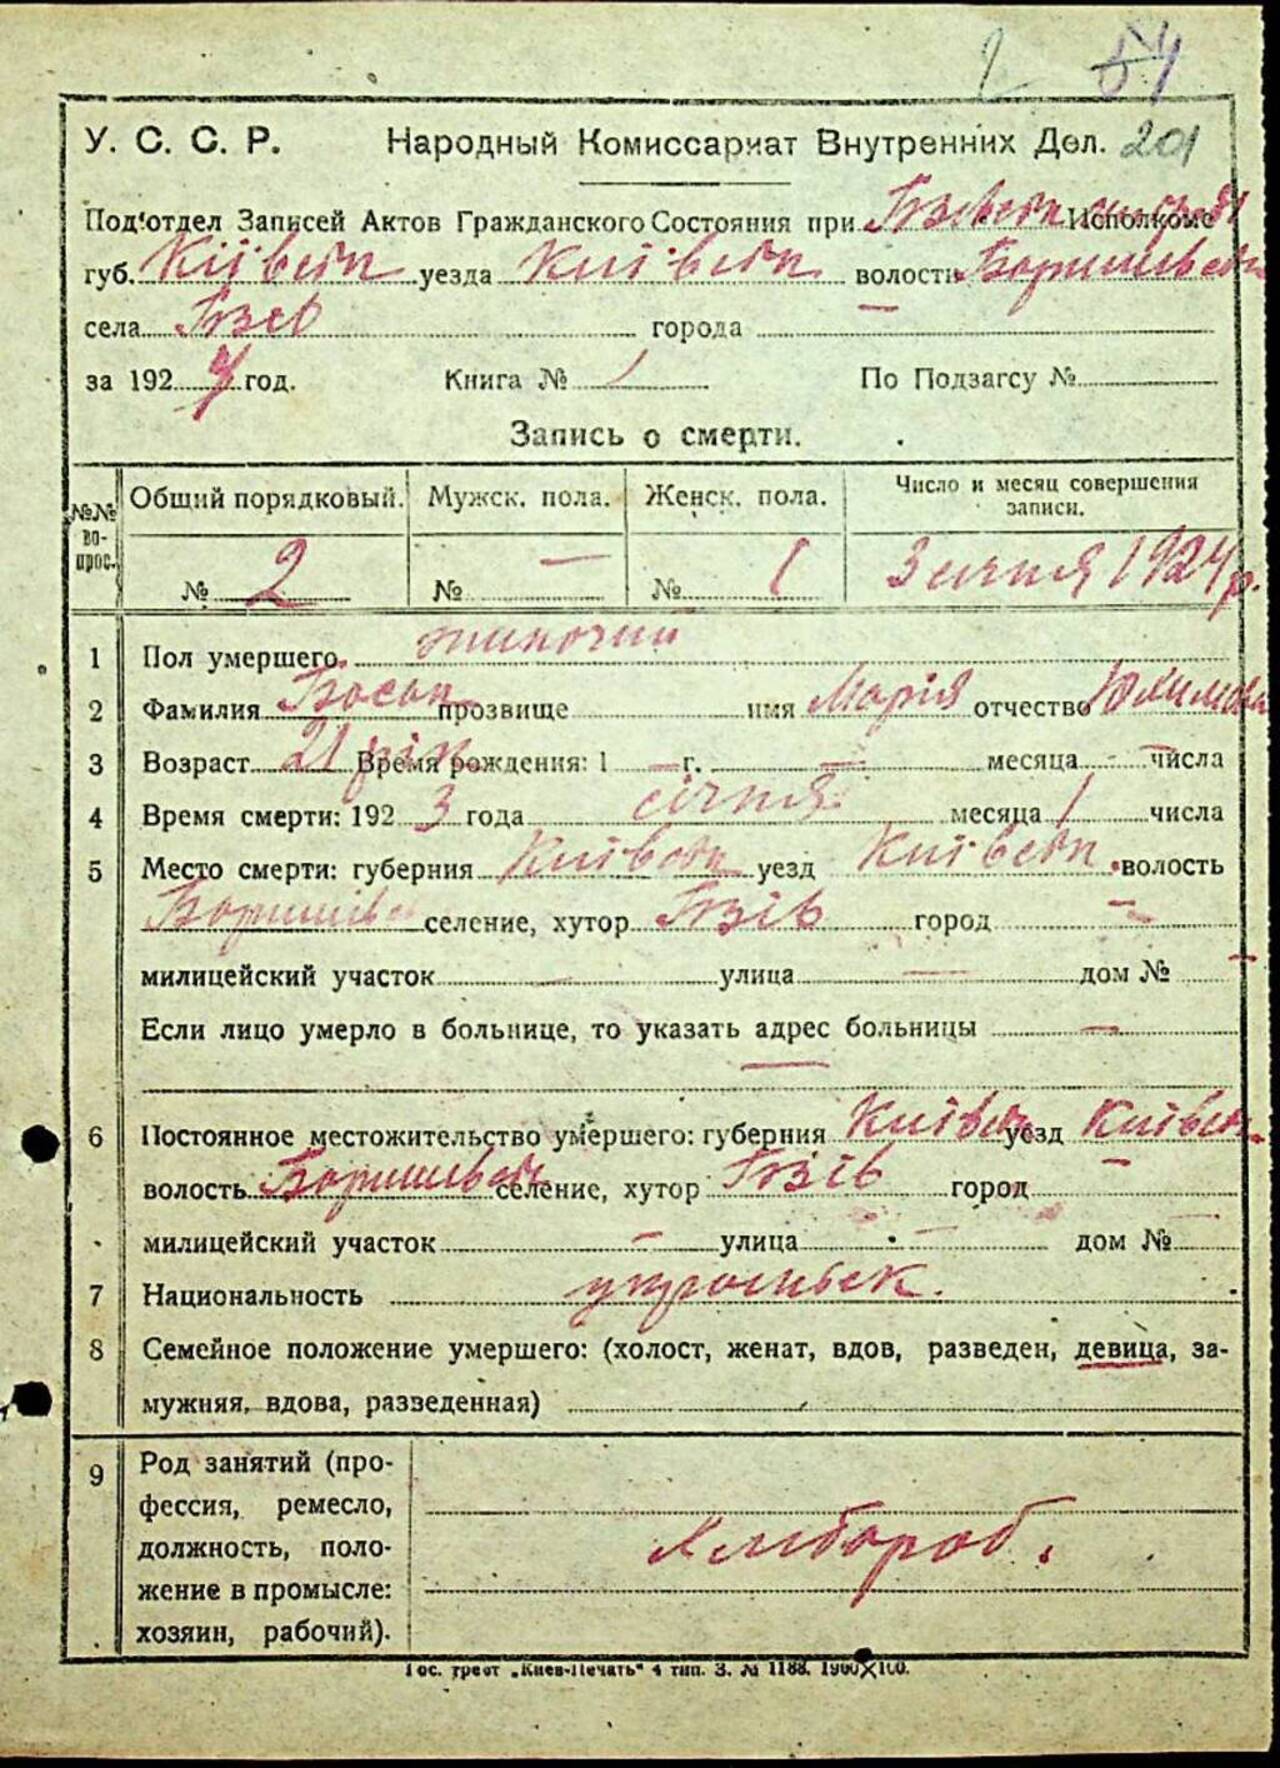 2 54
У. С. С. Р. Народный Комиссариат Внутренних Дел. 201
Под'отдел Записей Актов Гражданского Состояния при Исполкоме
губ. Київськ уезда Київськ волости
села Бзів города —
за 1924 год. Книга № По Подзагсу №
Запись о смерти.
№№ вопрос. Общий порядковый. Мужск. пола. Женск. пола. Число и месяц совершения записи.
№ 2 № — № 1 3 січня 1924 р.
1 Пол умершего жиночий
2 Фамилия прозвище имя Марія отчество Юхимовна
3 Возраст 21 рік Время рождения: 1 — г. — месяца - числа
4 Время смерти: 192 3 года січня месяца 1 числа
5 Место смерти: губерния Київськ уезд Київськ волость
селение, хутор Бзів город —
милицейский участок — улица — дом № —
Если лицо умерло в больнице, то указать адрес больницы —
—
6 Постоянное местожительство умершего: губерния Київськ уезд Київськ
волость селение, хутор Бзів город —
милицейский участок — улица — дом №
7 Национальность
8 Семейное положение умершего: (холост, женат, вдов, разведен, девица, за-
мужняя, вдова, разведенная)
9 Род занятий (про-
фессия, ремесло,
должность, поло- Хлибороб.
жение в промысле:
хозяин, рабочий).
Гос. трест „Киев-Печать“ 4 тип. З. № 1188.